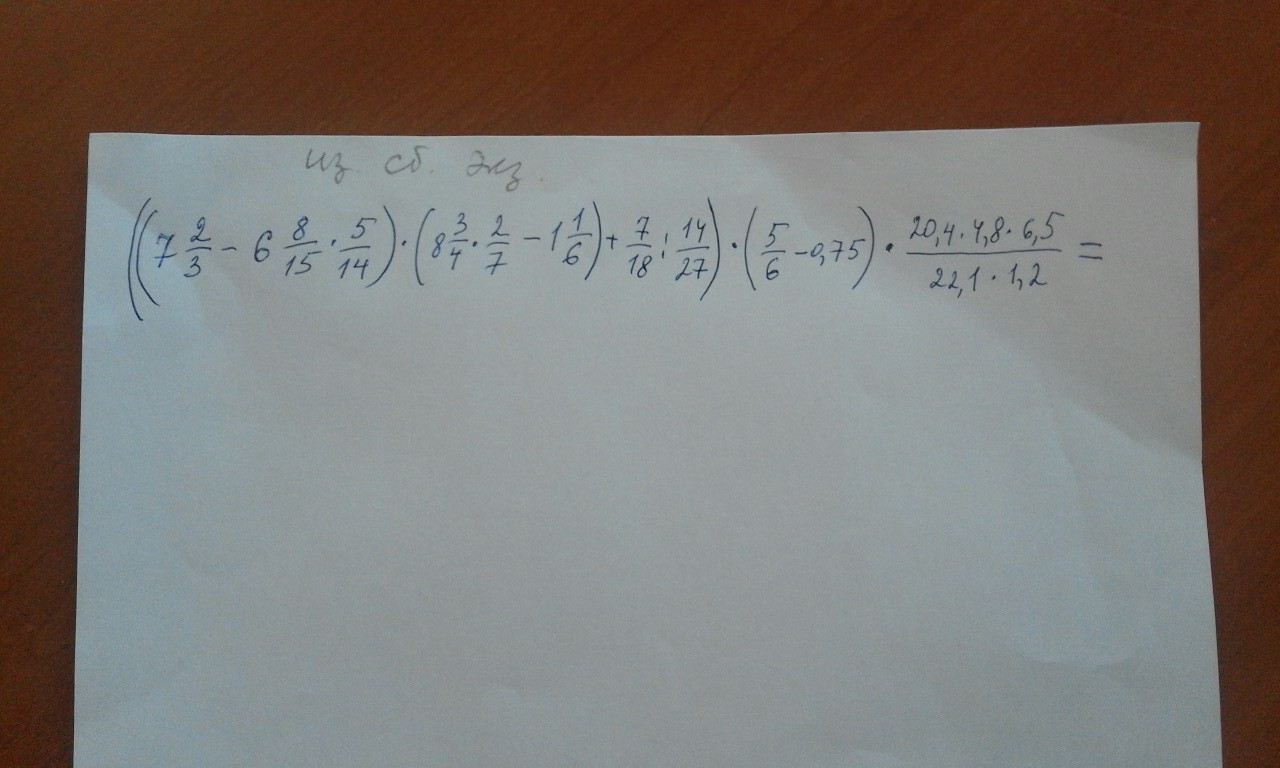 из сб. экз.
((7 2/3 - 6 8/15 · 5/14) · (8 3/4 · 2/7 - 1 1/6) + 7/18 : 14/27) · (5/6 - 0,75) · (20,4 · 4,8 · 6,5)/(22,1 · 1,2) =